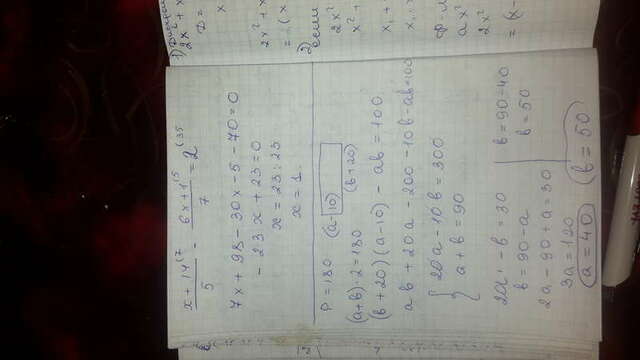 x + 14 (7 / 5 - 6x + 1 (5 / 7 = 2 (35
7x + 98 - 30x - 5 - 70 = 0
- 23x + 23 = 0
x = 23 : 23
x = 1
P = 180 (a - 10) (b + 20)
(a+b) · 2 = 180
(b + 20)(a - 10) - ab = 100
ab + 20a - 200 - 10b - ab = 100
{ 20a - 10b = 300
a + b = 90
2a - b = 30
b = 90 - a
2a - 90 + a = 30
3a = 120
a = 40
b = 90 - 40
b = 50
b = 50
2x²
x²
x₁ +
2x²